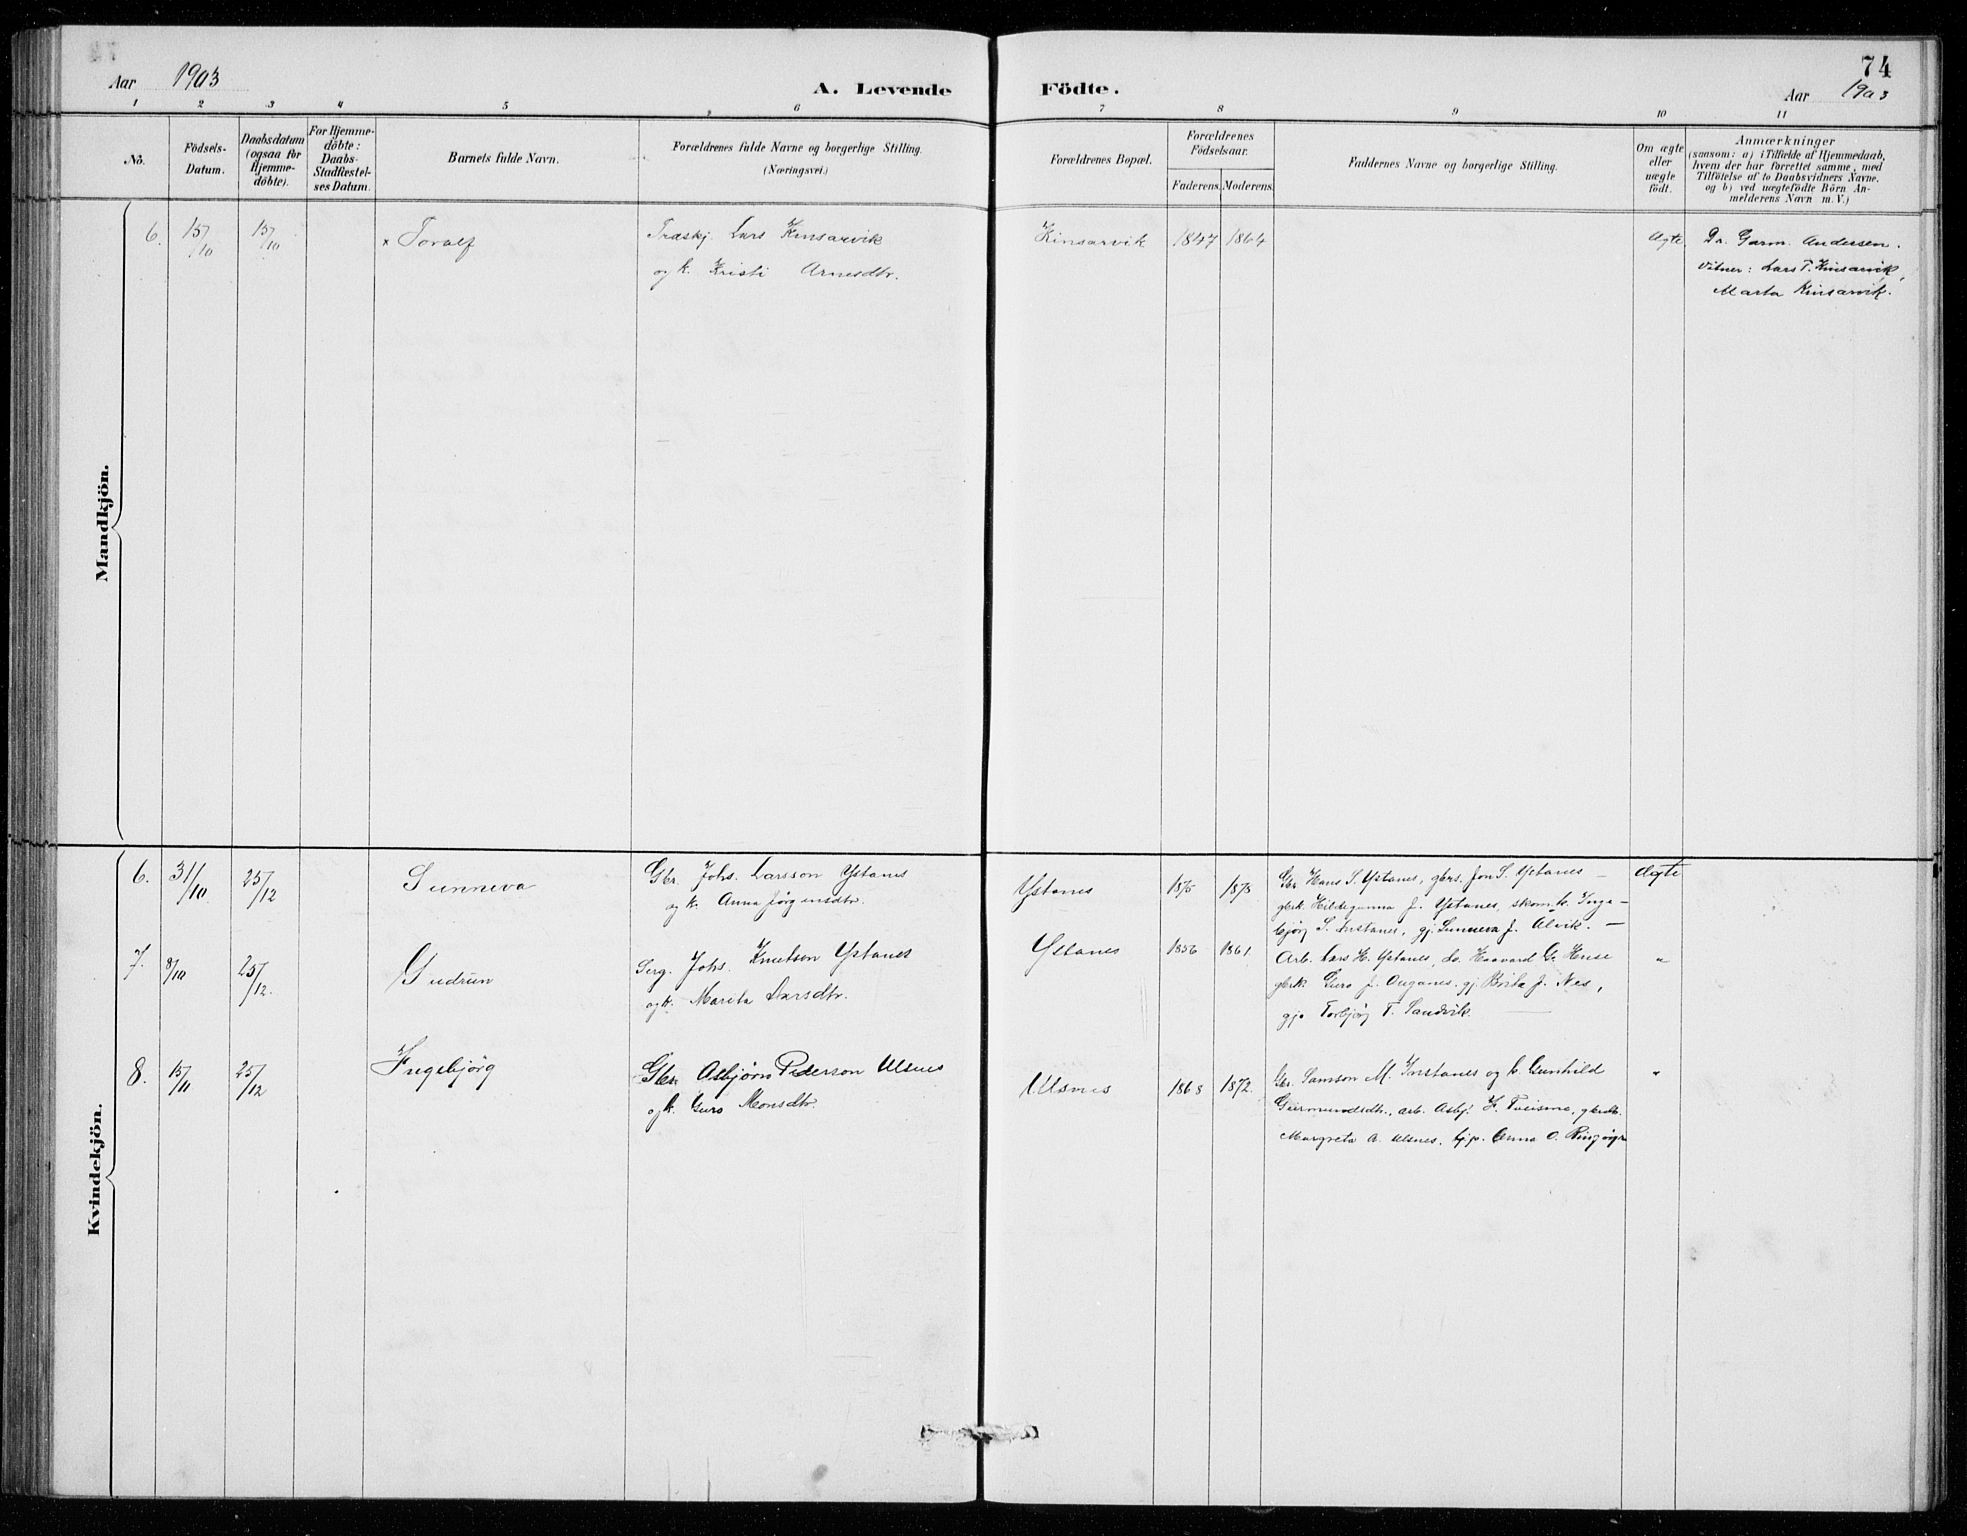 74
Aar 1903 A. Levende Födte. Aar 1903
1 2 3 4 5 6 7 8 9 10 11
No.
Födsels-
Datum.
Daabsdatum
(ogsaa for
Hjemme-
döbte).
For Hjemme-
döbte:
Daabs-
Stadfæstel-
ses Datum.
Barnets fulde Navn.
Forældrenes fulde Navne og borgerlige Stilling.
(Næringsvei.)
Forældrenes Bopæl.
Forældrenes
Födselsaar.
Faderens. Moderens.
Faddernes Navne og borgerlige Stilling.
Om ægte
eller
uægte
födt.
Anmærkninger
(saasom: a) i Tilfælde af Hjemmedaab,
hvem der har forrettet samme, med
Tilföielse af to Daabsvidners Navne.
og b) ved uægtefödte Börn An-
melderens Navn m. V.)
Mandkjön.
6. 15/10 15/10 × Toralf
Træskj. Lars Kinsarvik
og k. Kristi Arnesdtr.
Kinsarvik 1847 1864
Ægte
Dr. Garm. Andersen.
Vitner: Lars T. Kinsarvik,
Marta Kinsarvik.
Kvindekjön.
6. 31/10 25/12 Sunneva
Gbr. Johs. Larsson Ystanes
og k. Anna Jørgensdtr.
Ystanes 1875 1878
Gbr. Hans S. Ystanes, gbrs. Jon S. Ystanes –
gbrk. Hildegunna J. Ystanes, skom. k. Inge–
bjørg S. Instanes, gj. Sunneva J. Alvik. –
Ægte
7. 8/10 25/12. Gudrun
Serg. Johs. Knutson Ystanes
og k. Marita Larsdtr.
Ystanes 1856 1861.
Arb. Lars H. Ystanes, Haavard G. Huse
gbrk. Guro J. Auganes. gj. Brita J. Nes,
gjp Torbjørg T. Sandvik.
"
8. 15/11 25/12 Ingebjørg
Gbr. Asbjørn Pederson Ulsnes
og k. Guro Monsdtr.
Ulsnes 1868 1872.
Gbr. Samson M. Instanes og k. Gunhild
Geirmundsdtr., arb. Asbj. H. Tveisme, gbrdt.
Margreta A. Ulsnes. tjp. Anna O. Ringøyr
"